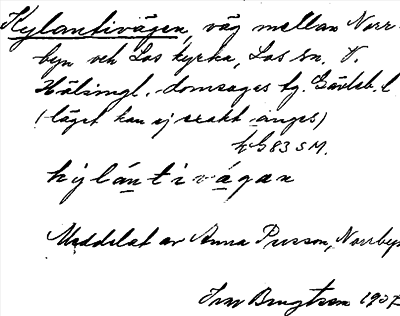 Kylantivägen, väg mellan Norr-
byn och Los kyrka, Los sn. V.
Hälsingl. domsagas tg. Gävleb. l
(läget kan ej exakt anges)
LG 83 s M.
kylántivágan
Meddelat av Anna Persson, Norrbyn
Bengtsson 1937